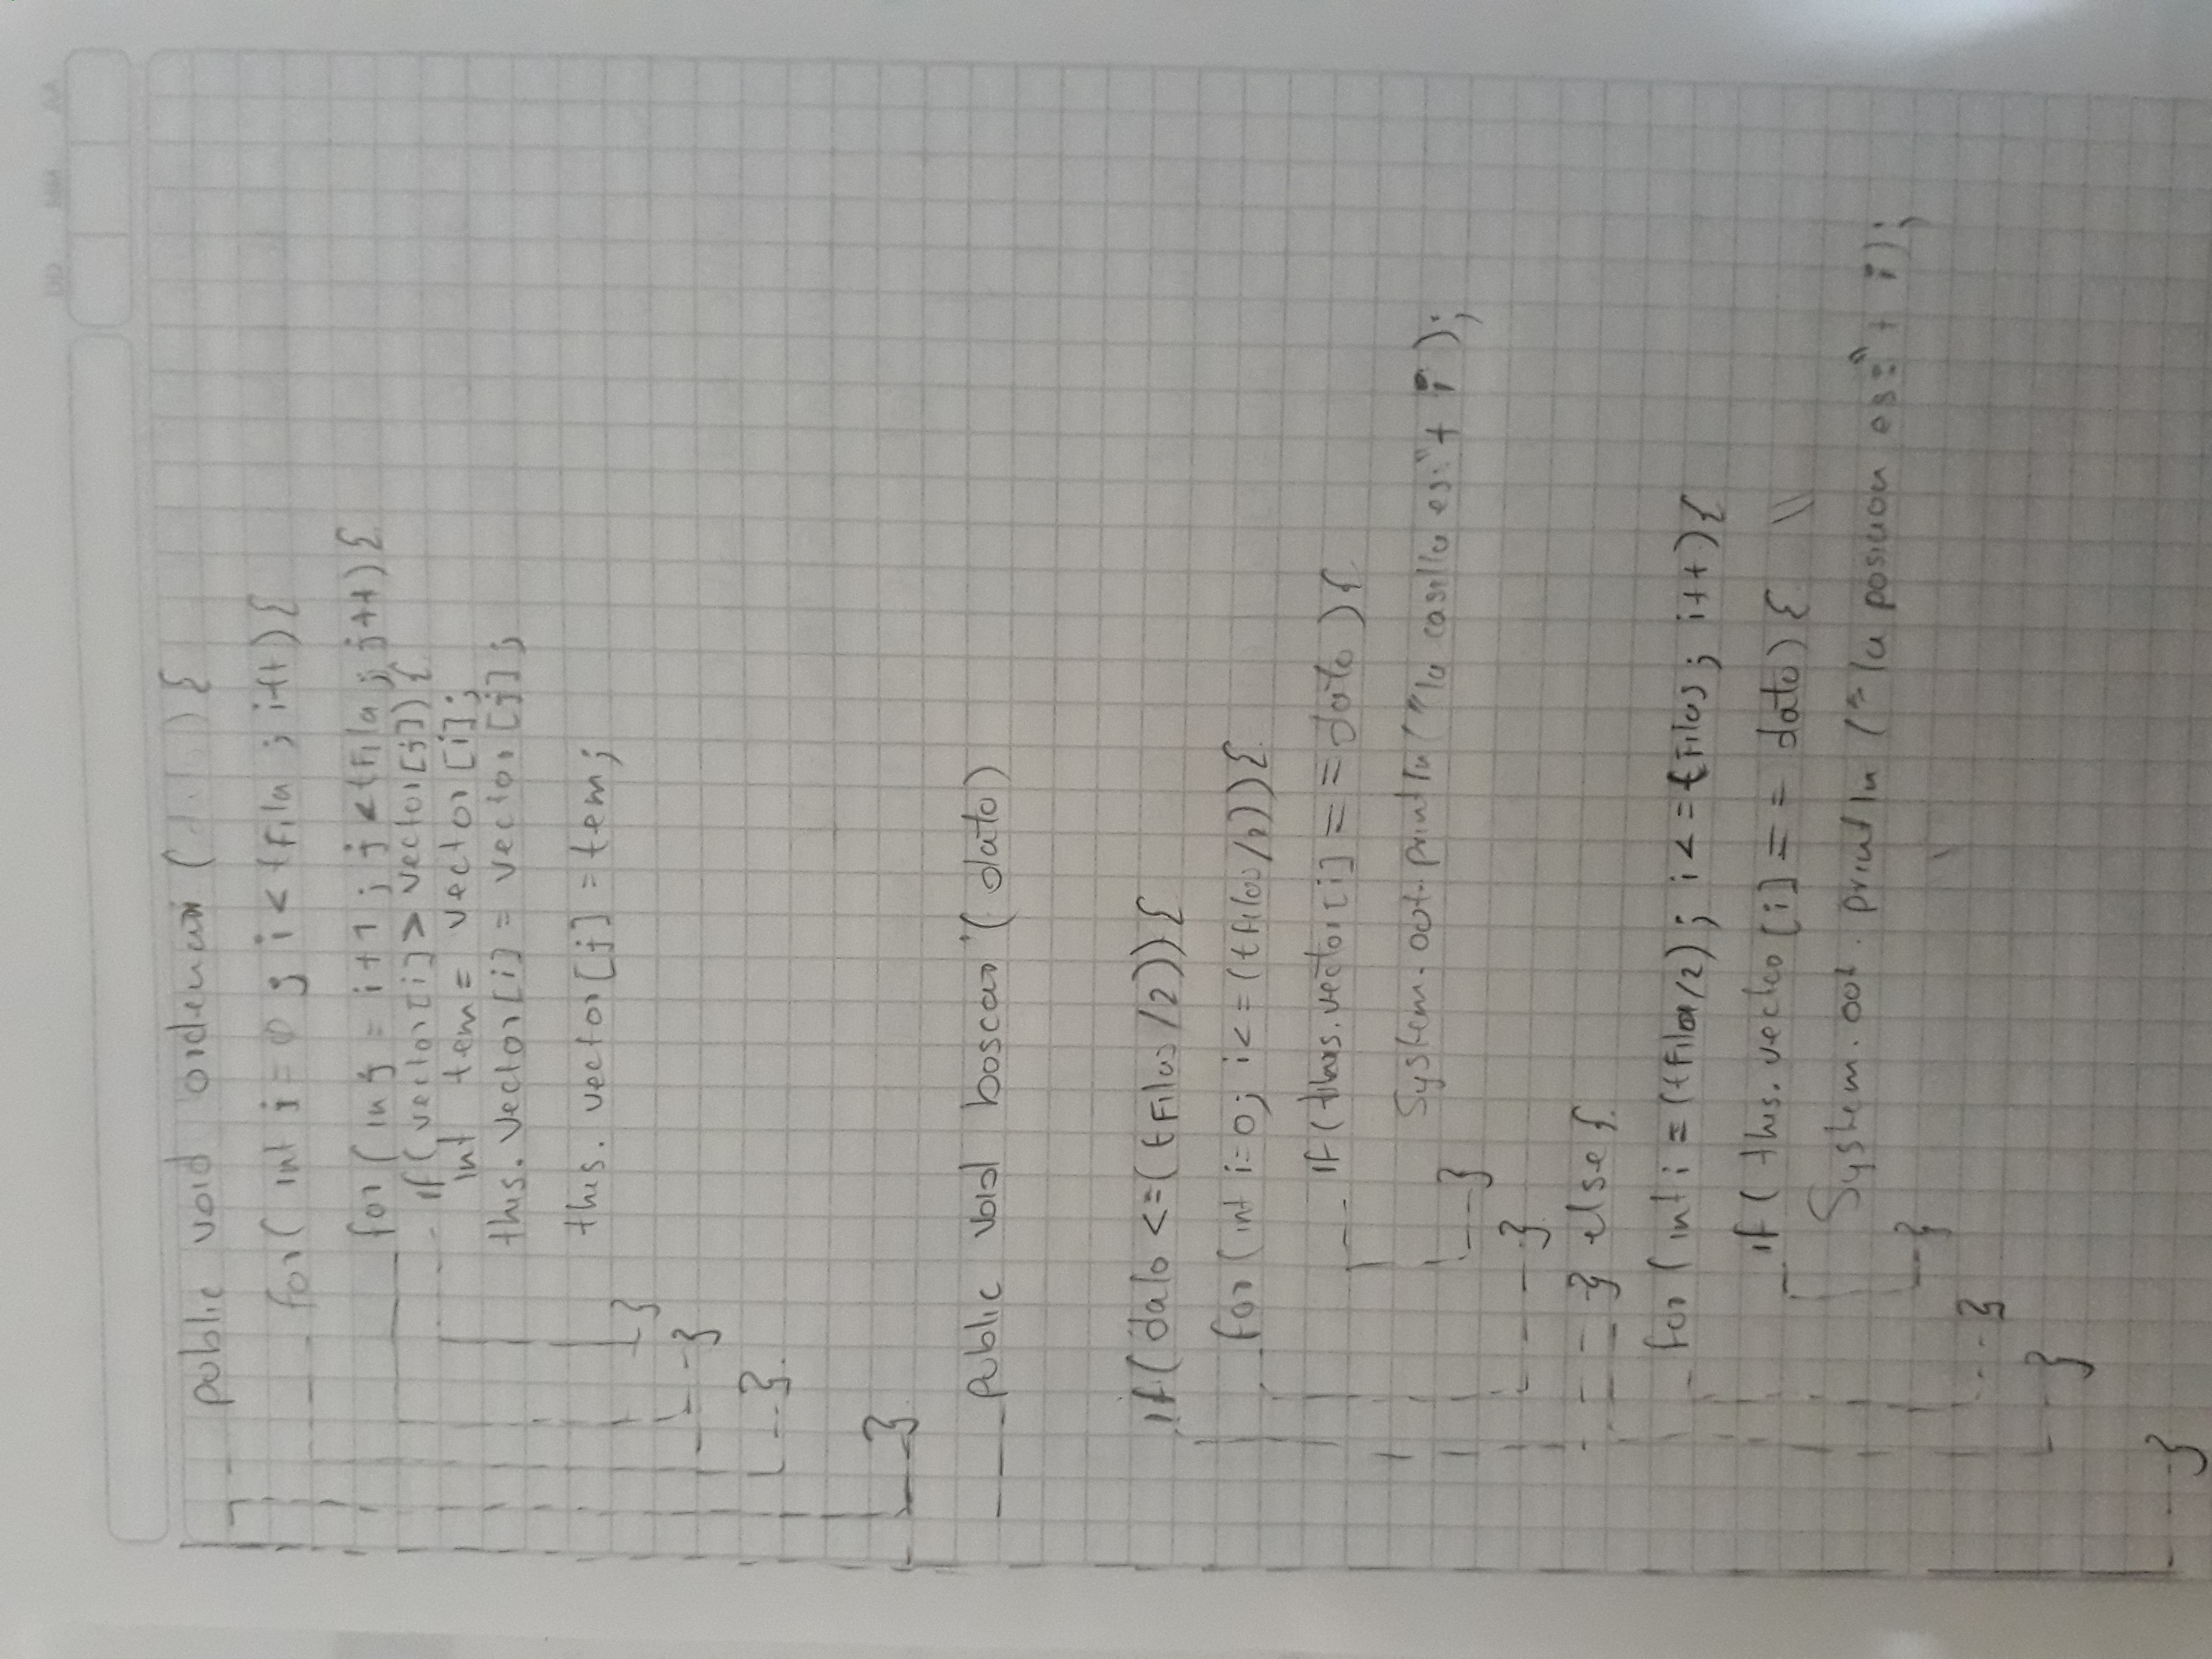 public void ordenar ( ) {
for ( int i = 0 ; i < tFila ; i++) {
for ( in j = i + 1 ; j < tFila ; j++) {
if ( vector[i] > vector[j]) {
int tem = vector [i];
this. Vector[i] = vector [j];
this. vector[j] = tem;
}
}
}
}
public void boscar ( dato)
if ( dato <= ( tFilas /2)) {
for ( int i=0; i<= (tFilas/2)) {
if ( this. vector [i] == dato ) {
System. out. println ("la casilla es:" + i );
}
}
} else {
for ( int i = (tFila/2) ; i <= tFilas ; i++) {
if ( this. vecteo [i] == dato) { \\
System. out . println ("la posicion es:" + i);
}
}
}
}